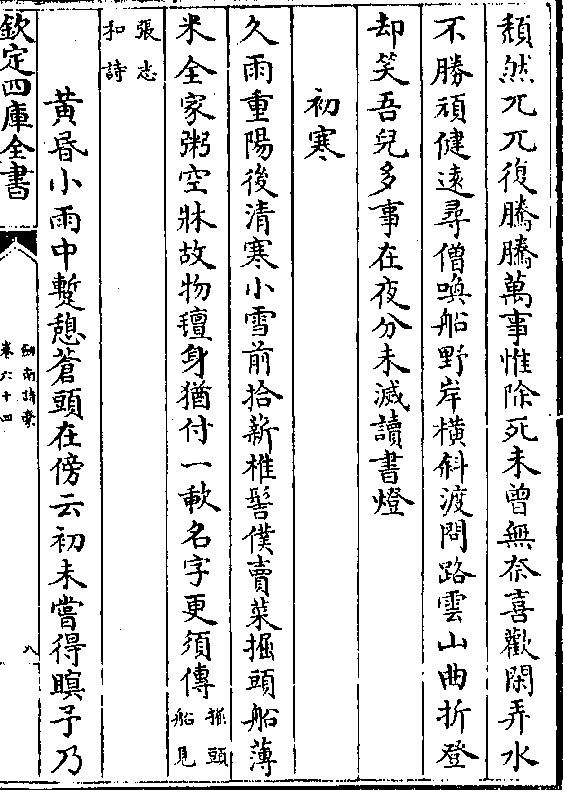 頽然兀兀復騰騰萬事惟除死未曾無奈喜歡閑弄水
不勝頑健逺尋僧喚船野岸橫斜渡問路雲山曲折登
却笑吾兒多事在夜分未滅讀書燈
初寒
久雨重陽後清寒小雪前拾薪椎髻僕賣菜掘頭船薄
米全家粥空牀故物氊身猶付一歃名字更須傳掘頭船見
張志和詩
黄昏小雨中蹔憩蒼頭在傍云初未嘗得瞑予乃
欽定四庫全書
劍南詩稾
卷六十四
八